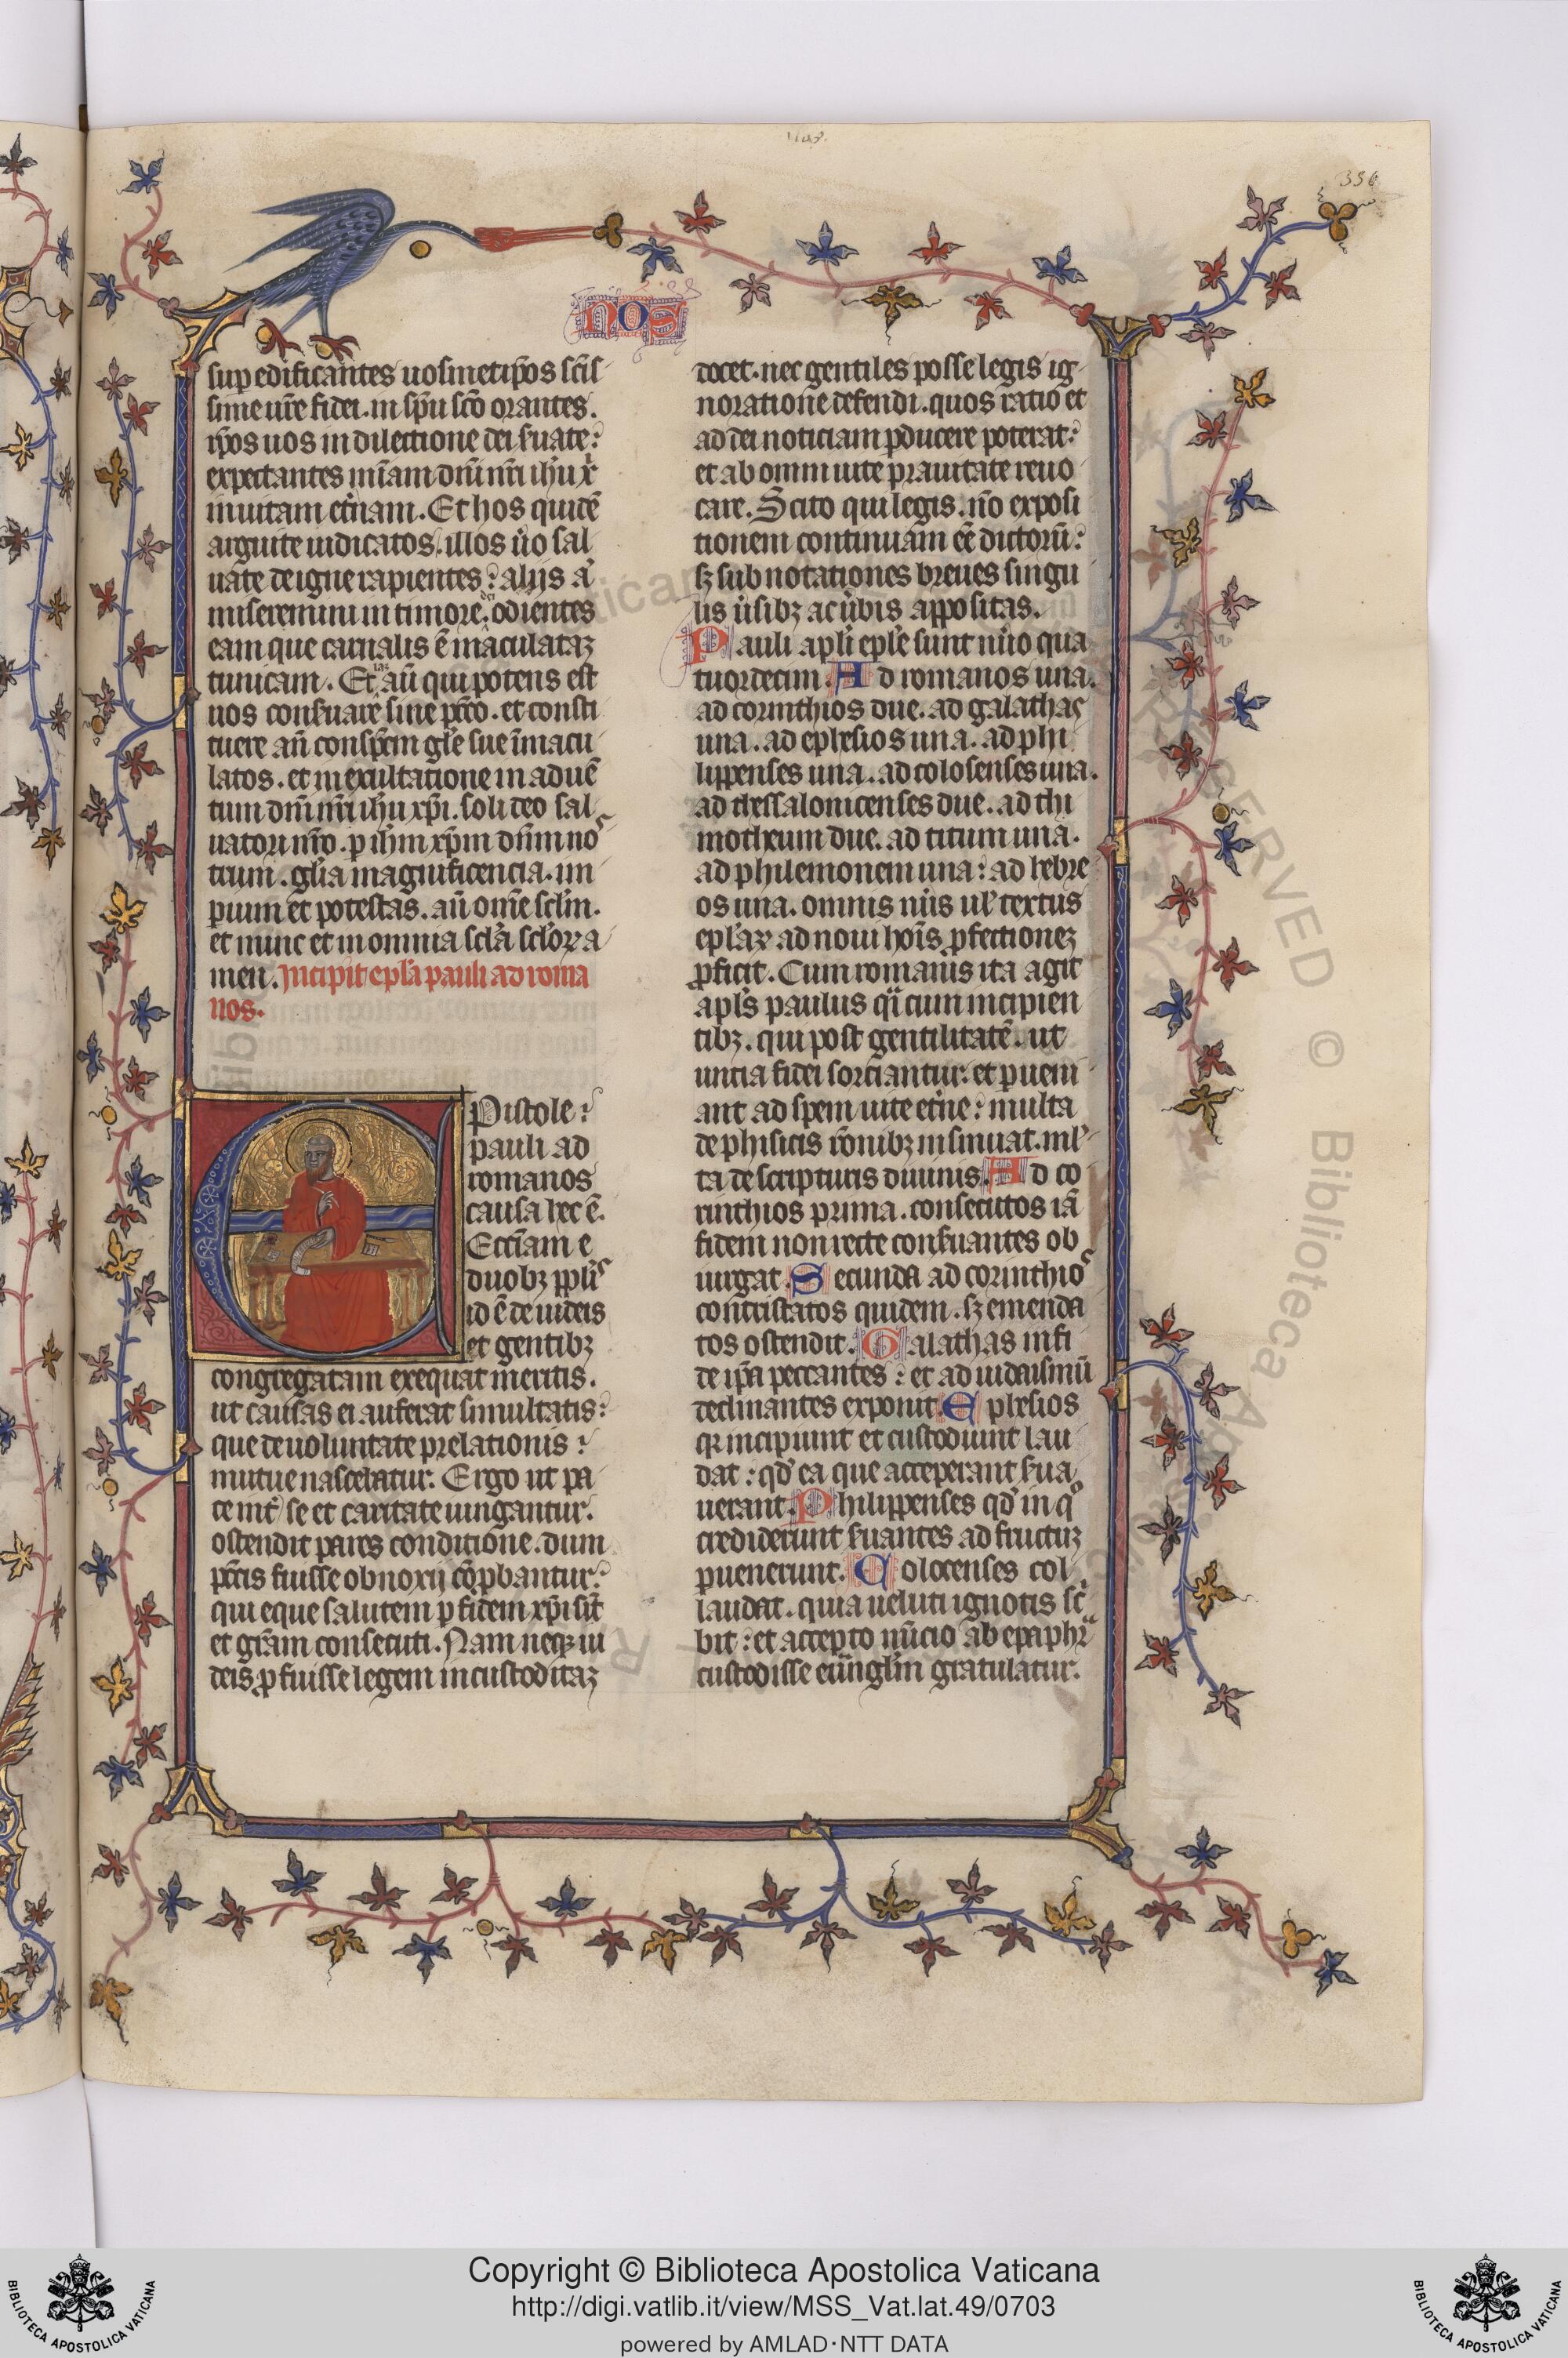 336
nos
sup edificantes uosmetip̄os sc̄is
sime ur̄e fidei. in sp̄u sc̄o orantes.
ip̄os uos in dilectione dei ẜuate:
expectantes mīam dn̄i nr̄i ih̄u xͥ
in uitam et̄nam. Et hos quidē
arguite iudicatos. illos ůo sal
uate de igne rapientes: alijs aͥ
miseremini in timore. odientes
eam que carnalis ē maculataꝫ
tunicam. Ei aūt qui potens est
uos conẜuare sine pc̄cō. et consti
tuere an̄ consp̄cm gl̄e sue īmacu
latos. et in exultatione in aduē
tum dn̄i nr̄i ih̄u xp̄i. soli deo sal
uatori nr̄o. ꝑ ih̄m xp̄m dn̄m noˢ
trum. gl̄ia magnificencia. im
perium et potestas. an̄ om̄e scl̄m.
et nunc et in omnia scl̄a scl̄oꝝ a
men. Incipit epl̄a pauli ad roma
nos.
EPistole:
pauli ad
romanos
causa hec ē.
Eccl̄iam e
duobꝫ ppl̄iˢ
id ē de iudeis
et gentibꝫ
congregatam exequat meritis.
ut causas ei auferat simultatis:
que de uoluntate prelationis:
mutue nascebatur. Ergo ut pa
ce int̄ se et caritate iungantur.
ostendit pares conditione. dum
pc̄cis fuisse obnoxij cōꝓbantur:
qui eque salutem ꝑ fidem xp̄i sūt
et gr̄am consecuti. Nam neqꝫ iu
deis ꝓfuisse legem incustoditaꝫ
docet. nec gentiles posse legis ig
noratione defendi. quos ratio et
ad dei noticiam ꝑducere poterat:
et ab omni uite prauitate reuo
care. Scito qui legis. nō exposi
tionem continuam eē dictorū:
sꝫ subnotationes breues singu
lis ůsibꝫ ac ůbis appositas.
Pauli apl̄i epl̄e sunt nūo qua
tuordecim. Ad romanos una.
ad corinthios due. ad galathas
una. ad ephesios una. ad phi
lippenses una. ad colosenses una.
ad thessalonicenses due. ad thi
motheum due. ad titum una.
ad philemonem una: ad hebre
os una. omnis n̄iis ul̓ textus
epl̄aꝝ ad noui hoīs ꝑfectioneꝫ
ꝓficit. Cum romanis ita agit
apl̄s paulus qͣi cum incipien
tibꝫ. qui post gentilitatē. ut
inicia fidei sorciantur: et ꝑueni
ant ad spem uite et̄ne: multa
de phisicis rōnibꝫ insinuat. ml̓
ta de scripturis diuinis. Ad co
rinthios prima. consecutos iā
fidem non recte conẜuantes ob
iurgat. Secunda ad corinthioˢ
contristatos quidem. sꝫ emenda
tos ostendit. Galathas in fi
de ip̄a peccantes: et ad iudaismū
declinantes exponit. Ephesios
qꝛ incipiunt et custodiunt lau
dat: qd̓ ea que acceperant ẜua
uerant. Philippenses qd̓ in qͦ
crediderunt ẜuantes ad fructuꝫ
ꝑuenerunt. Colocenses col
laudat. quia ueluti ignotis scͥ
bit: et accepto nūcio ab epaphͣ
custodisse eūuangl̄m gratulatur.
Copyright © Biblioteca Apostolica Vaticana
http://digi.vatlib.it/view/MSS_Vat.lat.49/0703
powered by AMLAD·NTT DATA
BIBLIOTECA APOSTOLICA VATICANA
BIBLIOTECA APOSTOLICA VATICANA